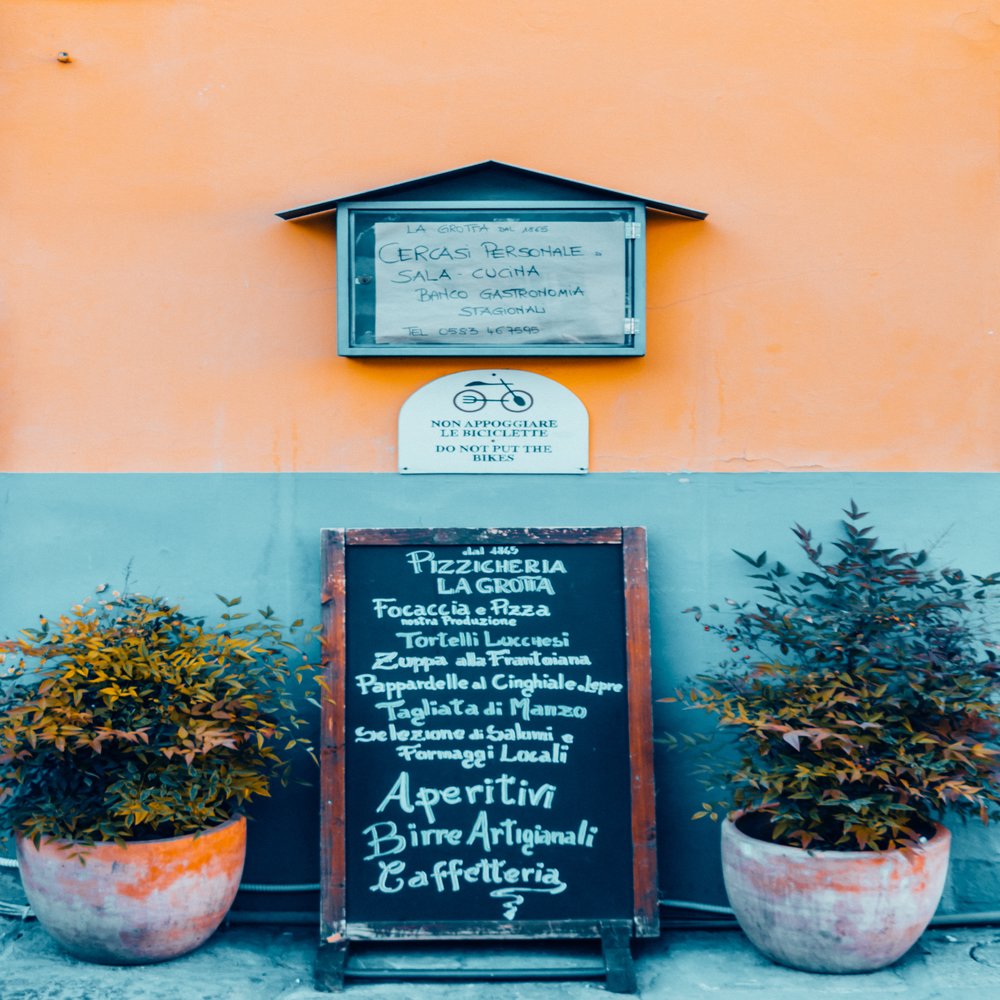 LA GROTTA DAL 1865
CERCASI PERSONALE
SALA - CUCINA
BANCO GASTRONOMIA
STAGIONALI
TEL 0583 467595
NON APPOGGIARE
LE BICICLETTE
DO NOT PUT THE
BIKES
dal 1865
PIZZICHERIA
LA GROTTA
Focaccia e Pizza
nostra Produzione
Tortelli Lucchesi
Zuppa alla Frantoiana
Pappardelle al Cinghiale o Lepre
Tagliata di Manzo
Selezione di Salumi e
Formaggi Locali
Aperitivi
Birre Artigianali
Caffetteria